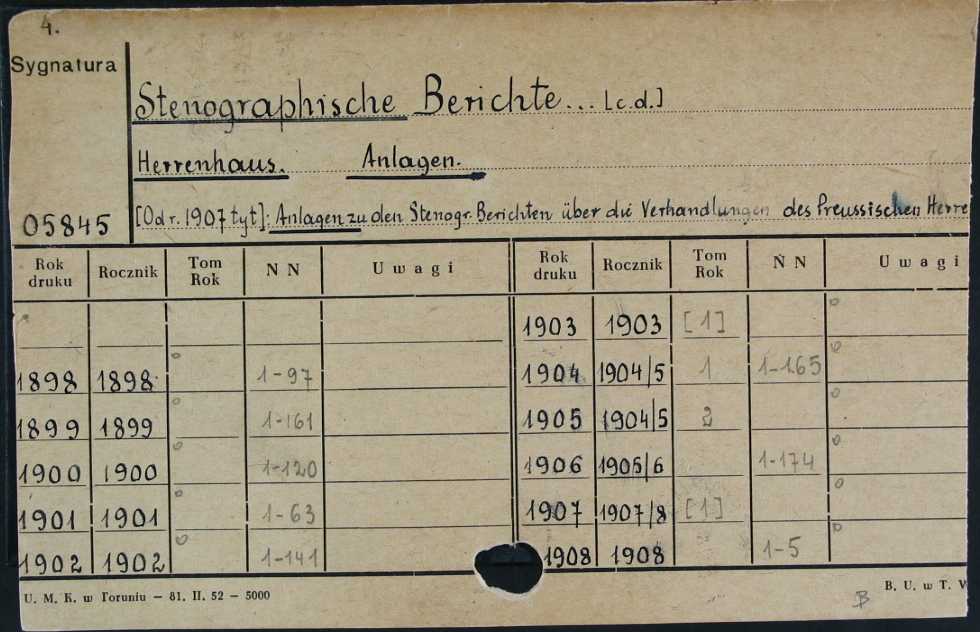 4.
Sygnatura
Stenographische Berichte... [c.d.]
Herrenhaus. Anlagen.
05845 [Od r. 1907 tyt]: Anlagen zu den Stenogr. Berichten über die Verhandlungen des Preussischen Herre
Rok druku Rocznik Tom Rok N N Uwagi Rok druku Rocznik Tom Rok N N Uwagi
1903 1903 [1]
1898 1898 1-97 1904 1904/5 1 1-165
1899 1899 1-161 1905 1904/5 2
1900 1900 1-120 1906 1905/6 1-174
1901 1901 1-63 1907 1907/8 [1]
1902 1902 1-141 1908 1908 1-5
U. M. K. w Toruniu – 81. II. 52 – 5000 B. U. w T. V
B